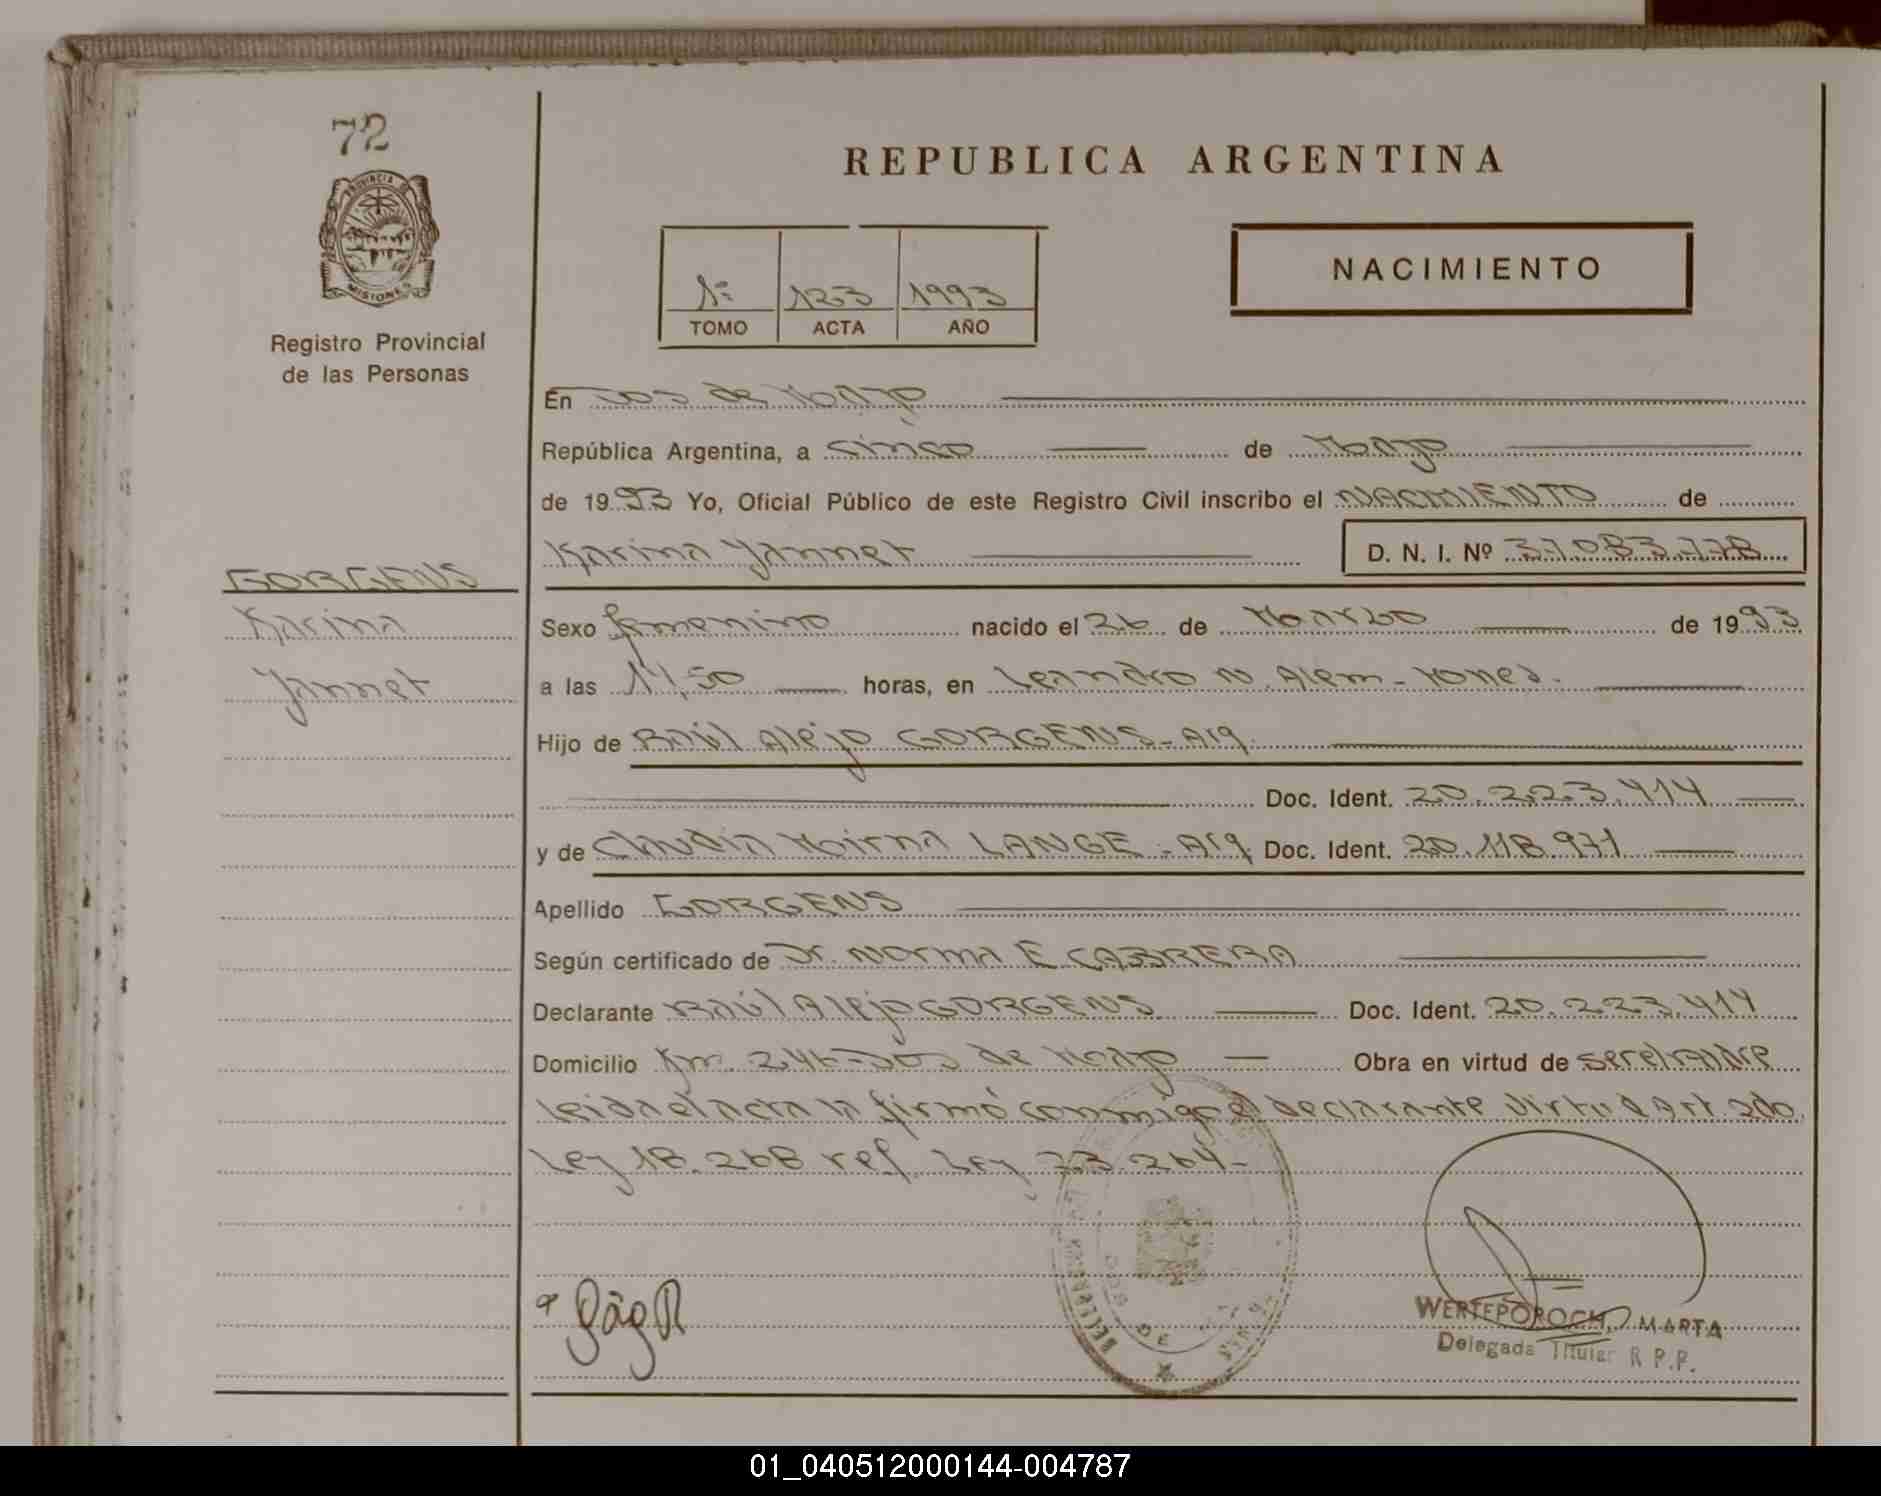 72
PROVINCIA DE
MISIONES
Registro Provincial
de las Personas
REPUBLICA ARGENTINA
1º 123 1993
TOMO ACTA AÑO
NACIMIENTO
En Dos de Mayo
República Argentina, a cinco de Mayo
de 1993 Yo, Oficial Público de este Registro Civil inscribo el NACIMIENTO de
Karina Yannet D. N. I. Nº 37.083.778
GORGENS
Karina
Yannet
Sexo femenino nacido el 26 de Marzo de 1993
a las 14,50 horas, en Leandro N. Alem - Mones.
Hijo de Raúl Alejo GORGENS - Arg.
Doc. Ident. 20.223.414
y de Claudia Mirna LANGE - Arg Doc. Ident. 20.118.971
Apellido GORGENS
Según certificado de Dr. Norma E CABRERA
Declarante Raúl Alejo GORGENS Doc. Ident. 20.223.414
Domicilio Km. 246-Dos de Mayo Obra en virtud de ser el Padre
Leida el acta la firmó conmigo el declarante Virtud Art. 2do.
Ley 18.268 ref. Ley 23.264-
WERTEPOROCH, MARTA
Delegada Titular R.P.P.
01_040512000144-004787